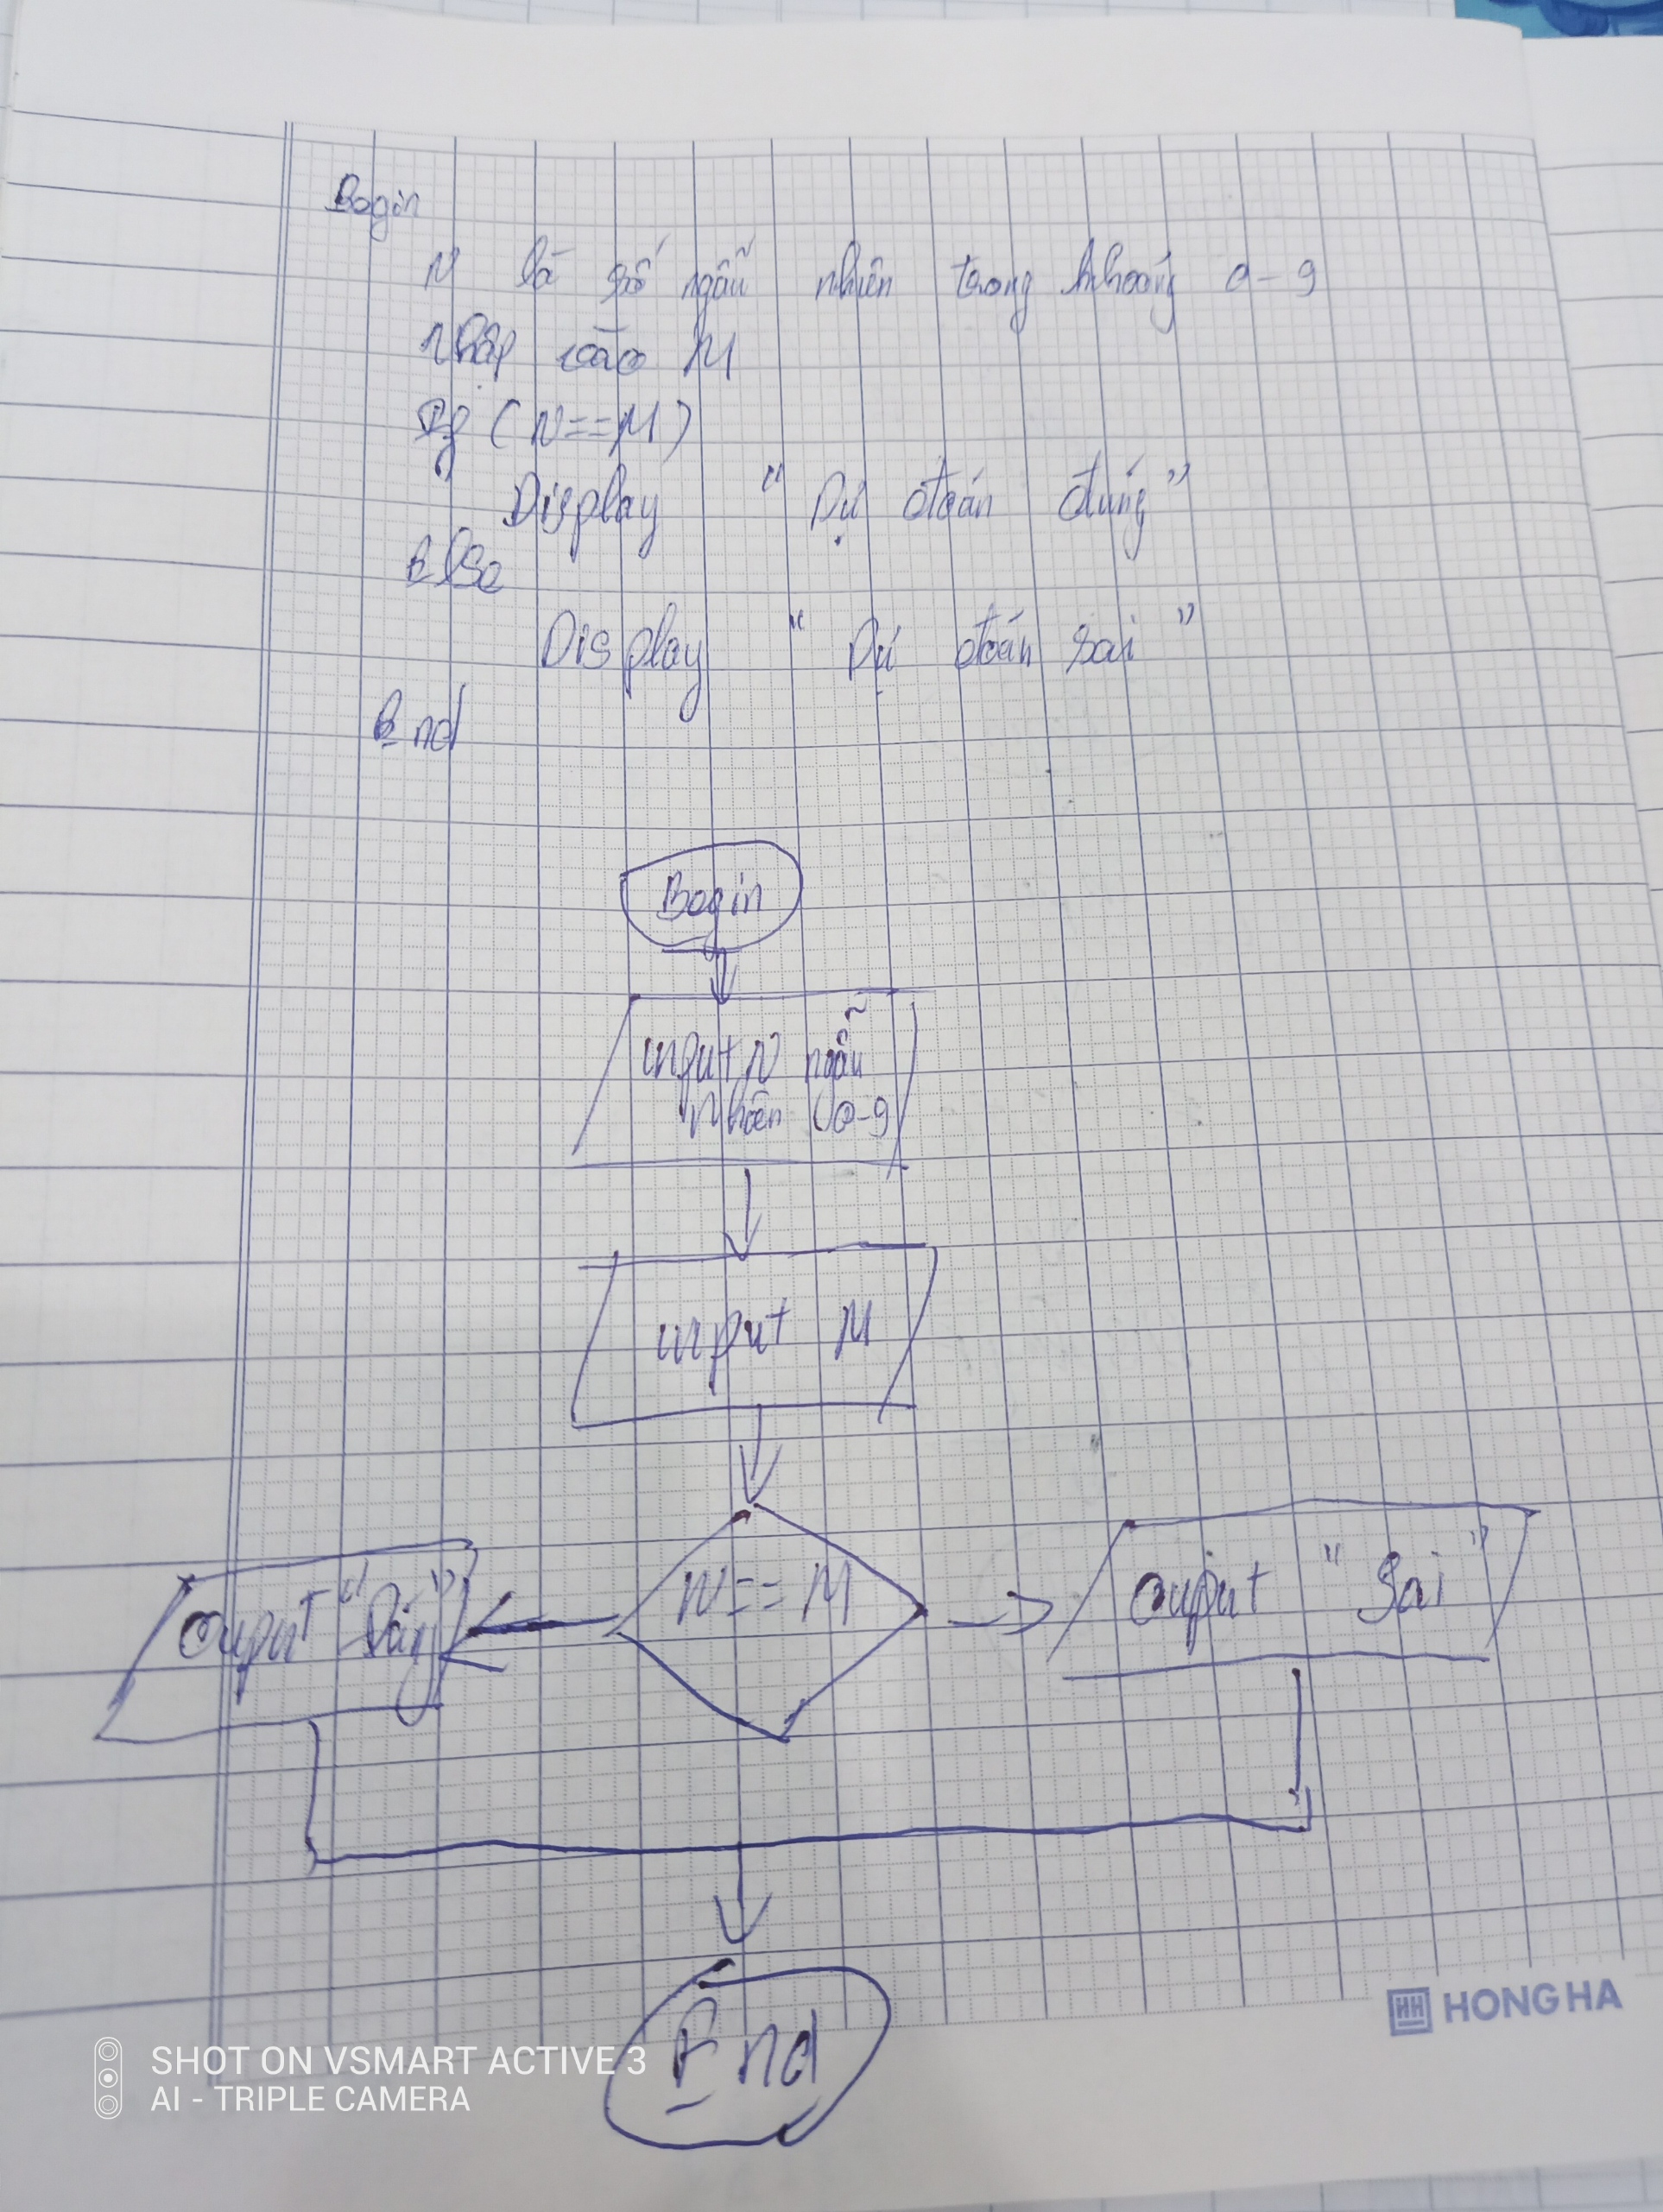 Begin
N là số ngẫu nhiên trong khoảng 0-9
Nhập vào M
If (N==M)
Display " Dự đoán đúng"
Else
Display " Dự đoán sai "
End
Begin
input N ngẫu
nhiên 0-9
input M
N == M
ouput "Đúng"
ouput " Sai "
End
HONG HA
SHOT ON VSMART ACTIVE 3
AI - TRIPLE CAMERA